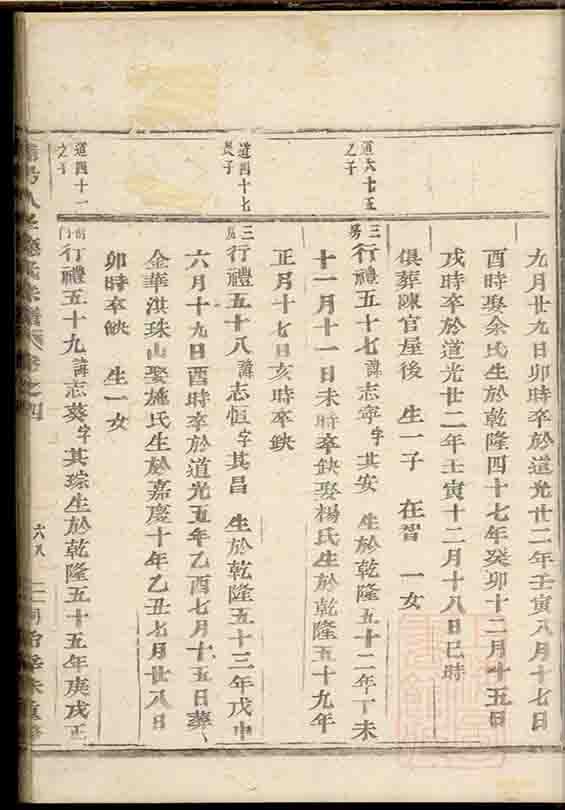 九月廿九日卯時卒於道光廿二年壬寅八月十七日
酉時娶余氏生於乾隆四十七年癸卯十二月十五日
戌時卒於道光廿二年壬寅十二月十八日巳時
俱葬陳官屋後 生一子 在習 一女
道六十五之子
三房行禮五十七諱志寧字其安 生於乾隆五十二年丁未
十一月十一日未時卒缺娶楊氏生於乾隆五十九年
正月十七日亥時卒缺
道四十七長子
三房行禮五十八諱志恒字其昌 生於乾隆五十三年戊申
六月十九日酉時卒於道光五年乙酉七月十五日葬
金華淇珠山娶施氏生於嘉慶十年乙丑七月廿八日
卯時卒缺 生一女
道四十一之子
行禮五十九諱志葵字其琮生於乾隆五十五年庚戌正
卷之四 六八